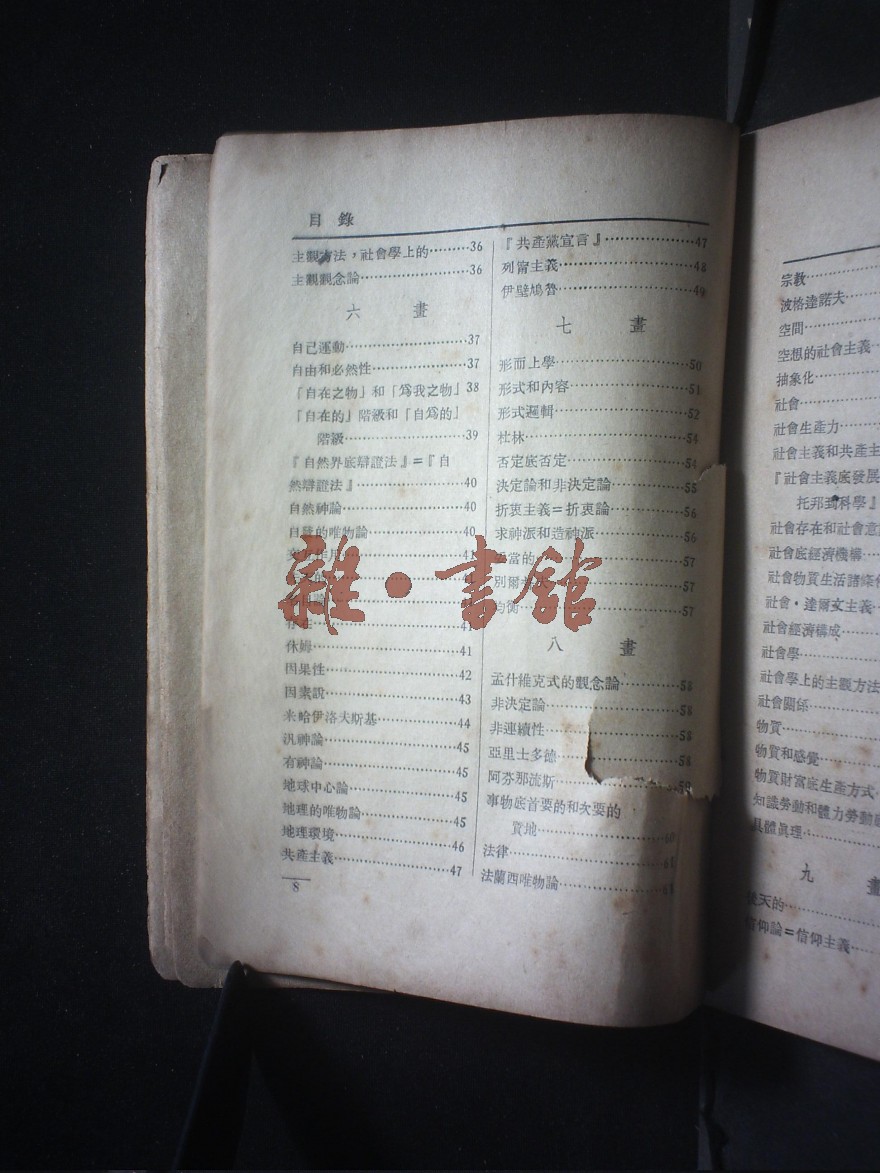 目錄
主觀方法，社會學上的………36
主觀觀念論………36
六畫
自己運動………37
自由和必然性………37
「自在之物」和「爲我之物」38
「自在的」階級和「自爲的」
階級………39
『自然界底辯證法』＝『自
然辯證法』………40
自然神論………40
自發的唯物論………40
41
41
存在………41
休姆………41
因果性………42
因素說………43
米哈伊洛夫斯基………44
汎神論………45
有神論………45
地球中心論………45
地理的唯物論………45
地理環境………46
共產主義………47
8
『共產黨宣言』………47
列甯主義………48
伊壁鳩魯………49
七畫
形而上學………50
形式和內容………51
形式邏輯………52
杜林………54
否定底否定………54
決定論和非決定論………55
折衷主義＝折衷論………56
求神派和造神派………56
當的………57
別爾………57
均衡………57
八畫
孟什維克式的觀念論………58
非決定論………58
非連續性………58
亞里士多德………58
阿芬那流斯………59
事物底首要的和次要的
質地………60
法律………61
法蘭西唯物論………61
雜·書館
宗教………
波格達諾夫………
空間………
空想的社會主義
抽象化………
社會………
社會生產力………
社會主義和共產主
『社會主義底發展
托邦到科學』
社會存在和社會意
社會底經濟機構………
社會物質生活諸條件
社會·達爾文主義………
社會經濟構成………
社會學………
社會學上的主觀方法
社會關係………
物質………
物質和感覺………
物質財富底生產方式
知識勞動和體力勞動
具體眞理………
九畫
後天的………
信仰論＝信仰主義………